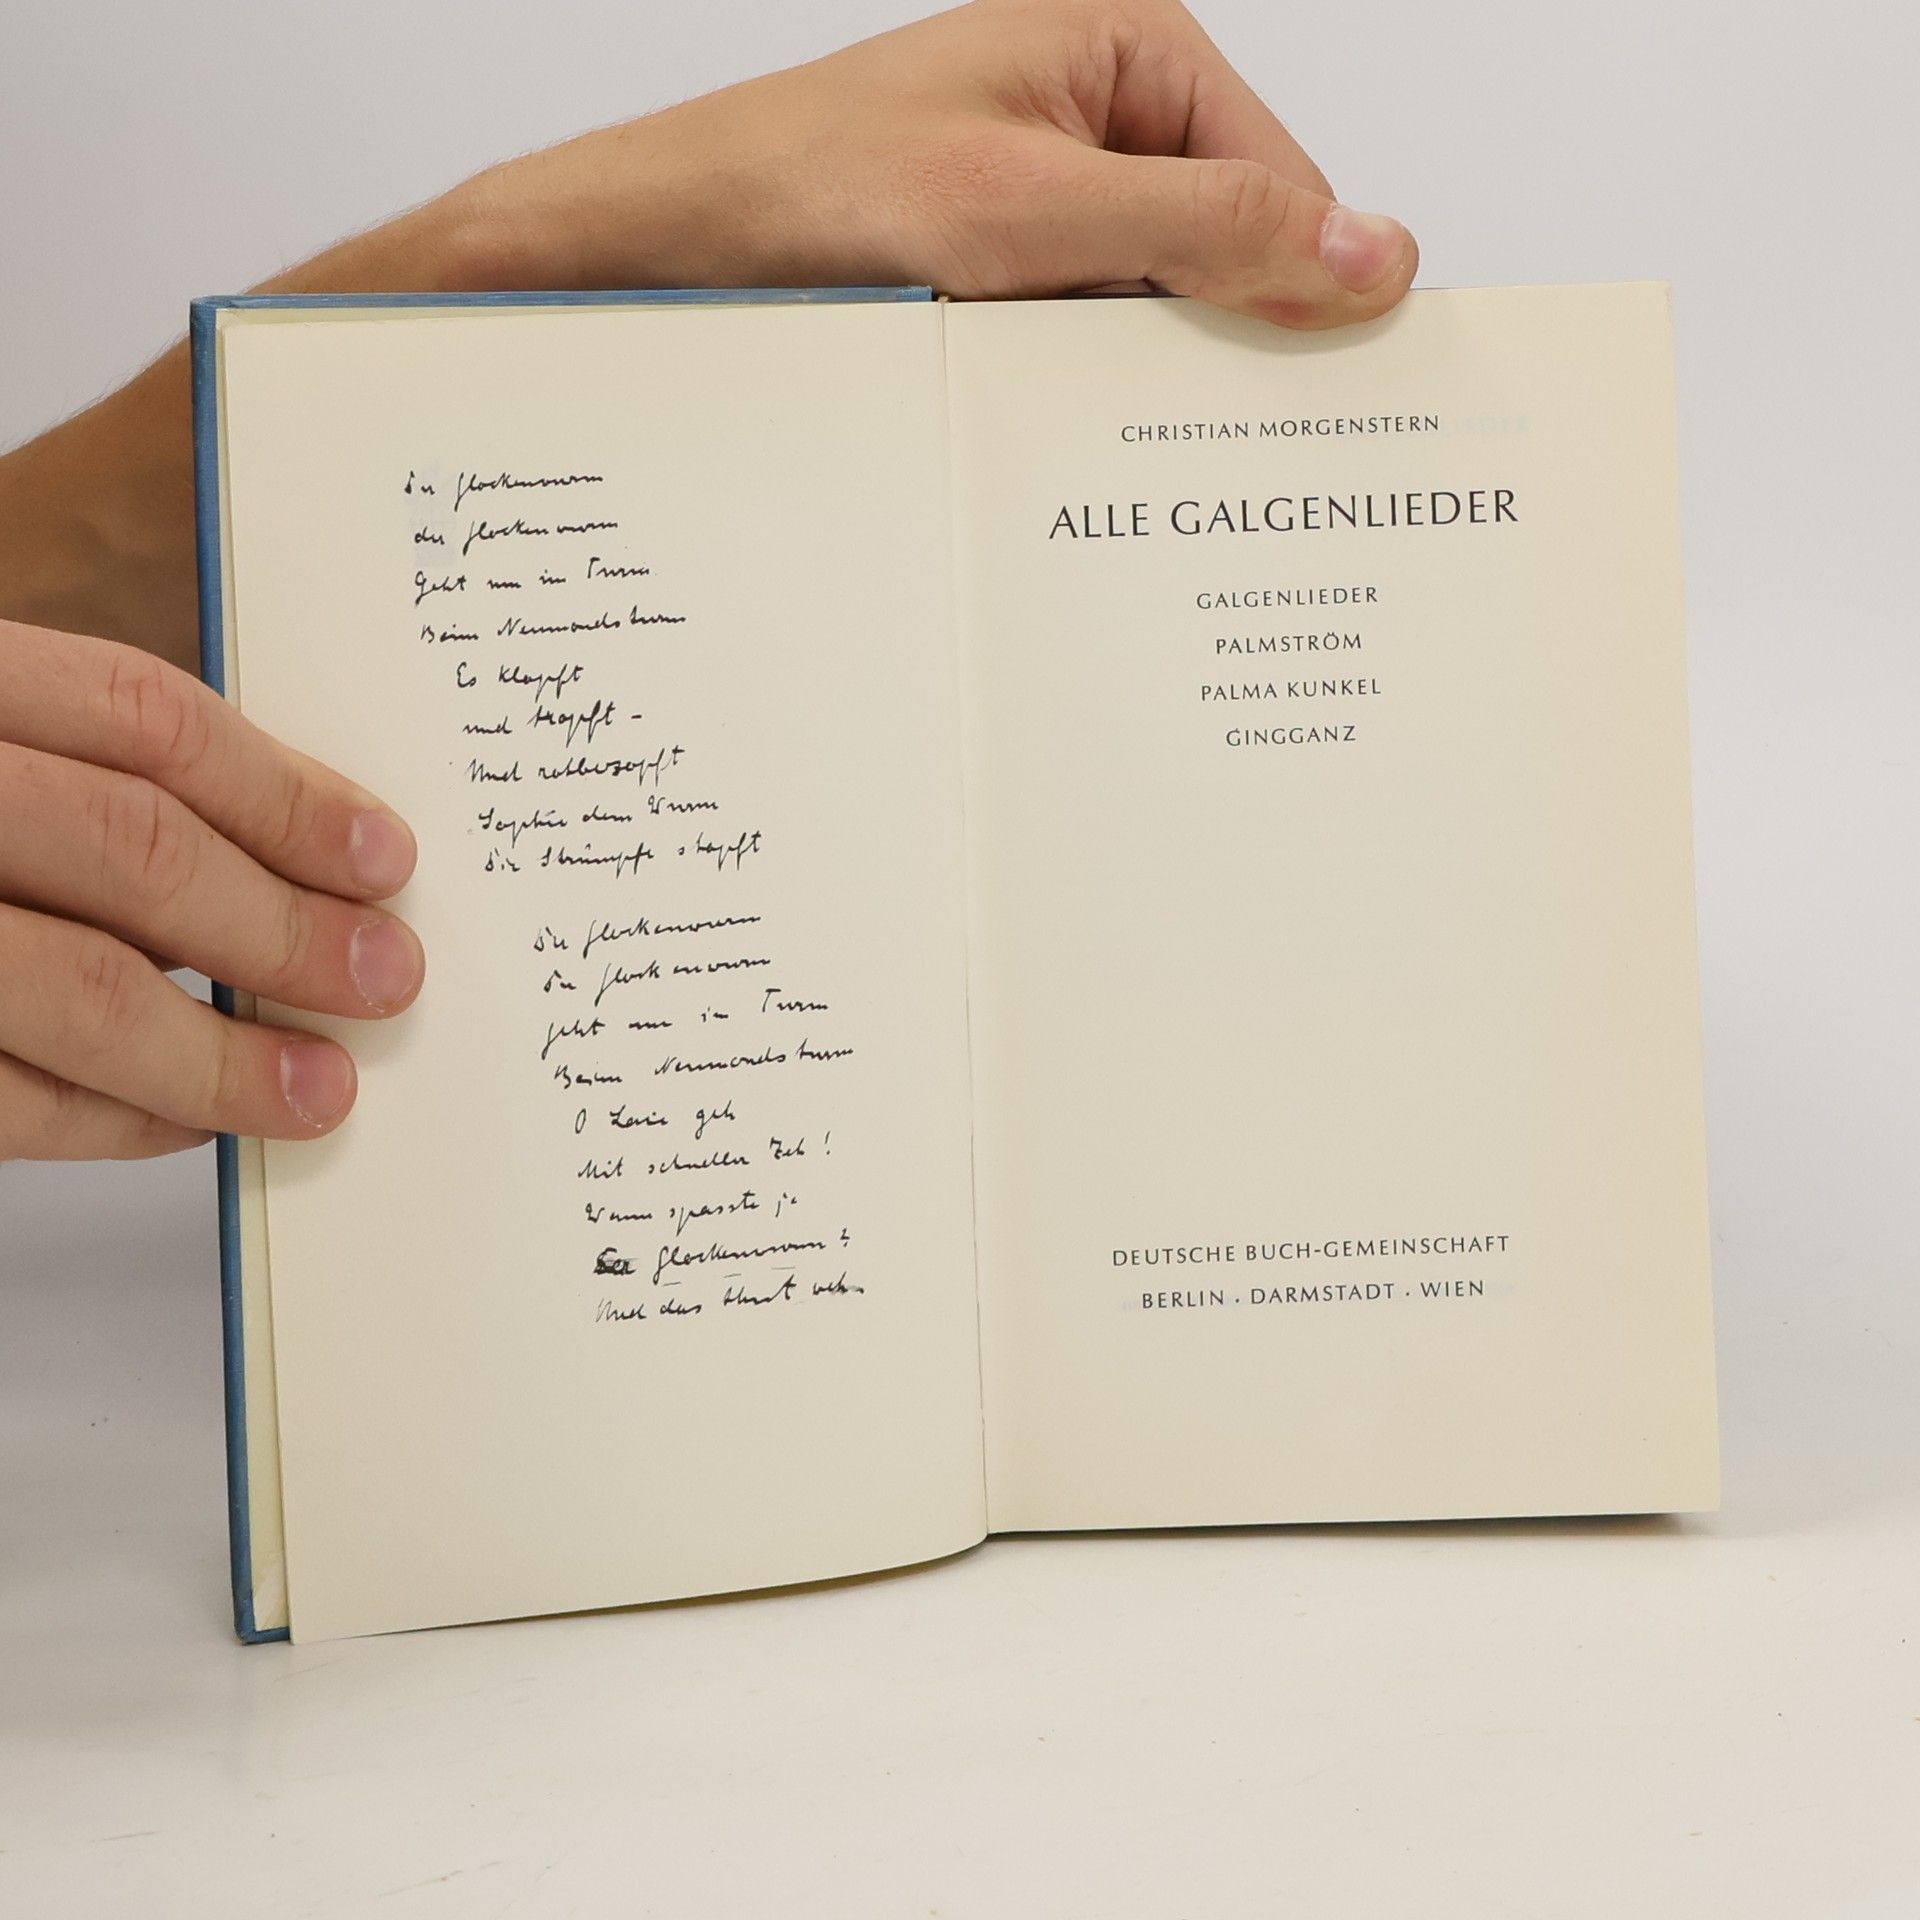 Der Glockenwurm
der Glockenwurm
Geht um im Turm
Beim Neumondsturm
Es klopft
und tropft –
Und rotbezopft
Sophie dem Wurm
Die Strümpfe stopft
Der Glockenwurm
Der Glockenwurm
geht um im Turm
Beim Neumondsturm
O Laie geh
Mit schneller Zeh!
Wenn spasste je
Der Glockenwurm?
Und das thut weh.
CHRISTIAN MORGENSTERN
ALLE GALGENLIEDER
GALGENLIEDER
PALMSTRÖM
PALMA KUNKEL
GINGGANZ
DEUTSCHE BUCH-GEMEINSCHAFT
BERLIN · DARMSTADT · WIEN